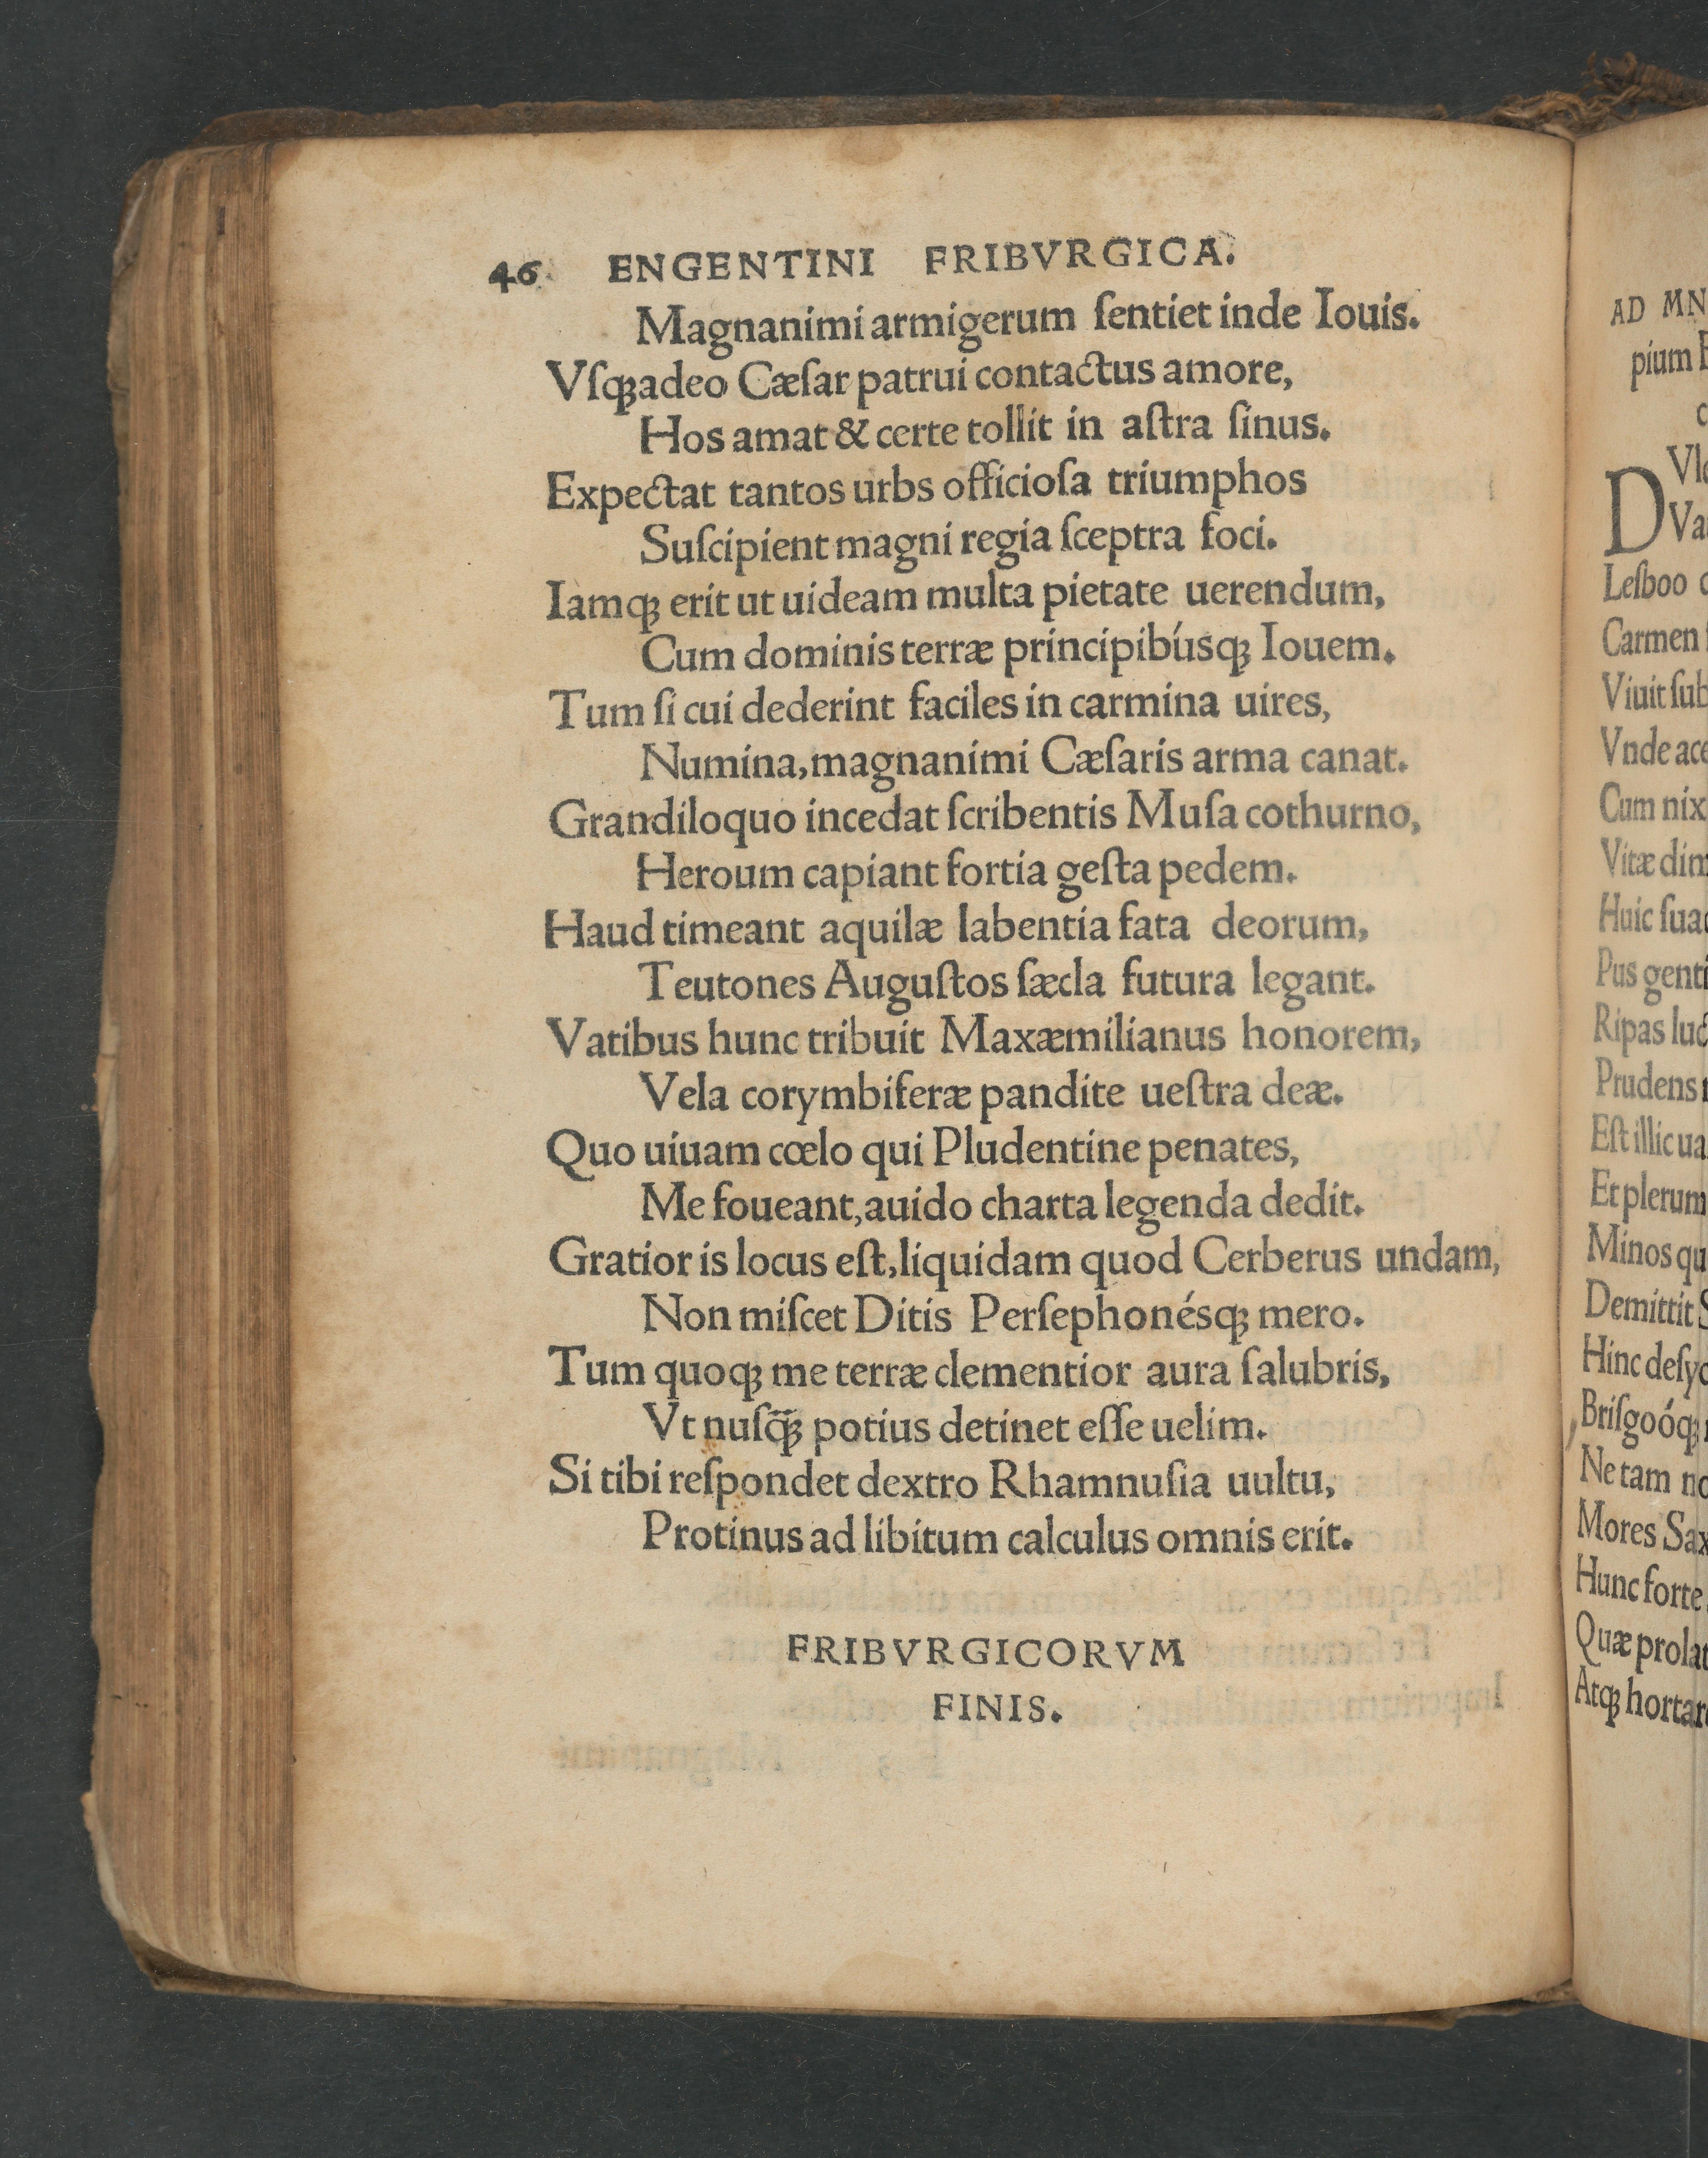 46 ENGENTINI FRIBVRGICA.
Magnanimi armigerum ſentiet inde Iouis.
Vſq́ꝫadeo Cæſar patrui contactus amore,
Hos amat & certe tollit in aſtra ſinus.
Expectat tantos urbs officioſa triumphos
Suſcipient magni regia ſceptra foci.
Iamqꝫ erit ut uideam multa pietate uerendum,
Cum dominis terræ principibúsqꝫ Iouem.
Tum ſi cui dederint faciles in carmina uires,
Numina,magnanimi Cæſaris arma canat.
Grandiloquo incedat ſcribentis Muſa cothurno,
Heroum capiant fortia geſta pedem.
Haud timeant aquilæ labentia fata deorum,
Teutones Auguſtos ſæcla futura legant.
Vatibus hunc tribuit Maxæmilianus honorem,
Vela corymbiferæ pandite ueſtra deæ.
Quo uiuam cœlo qui Pludentine penates,
Me foueant,auido charta legenda dedit.
Gratior is locus eſt,liquidam quod Cerberus undam,
Non miſcet Ditis Perſephonésqꝫ mero.
Tum quoqꝫ me terræ clementior aura ſalubris,
Vt nuſq̃ꝫ potius detinet eſſe uelim.
Si tibi reſpondet dextro Rhamnuſia uultu,
Protinus ad libitum calculus omnis erit.
FRIBVRGICORVM
FINIS.
AD
pium
Leſboo
Carmen
Viuit
Vnde
Cum
Vitæ
Huic
Pus
Ripas
Prudens
Eſt illic
Et
Minos
Demittit
Hinc
Briſgoóqꝫ
Ne tam
Mores
Hunc forte
Quæ
Atqꝫ